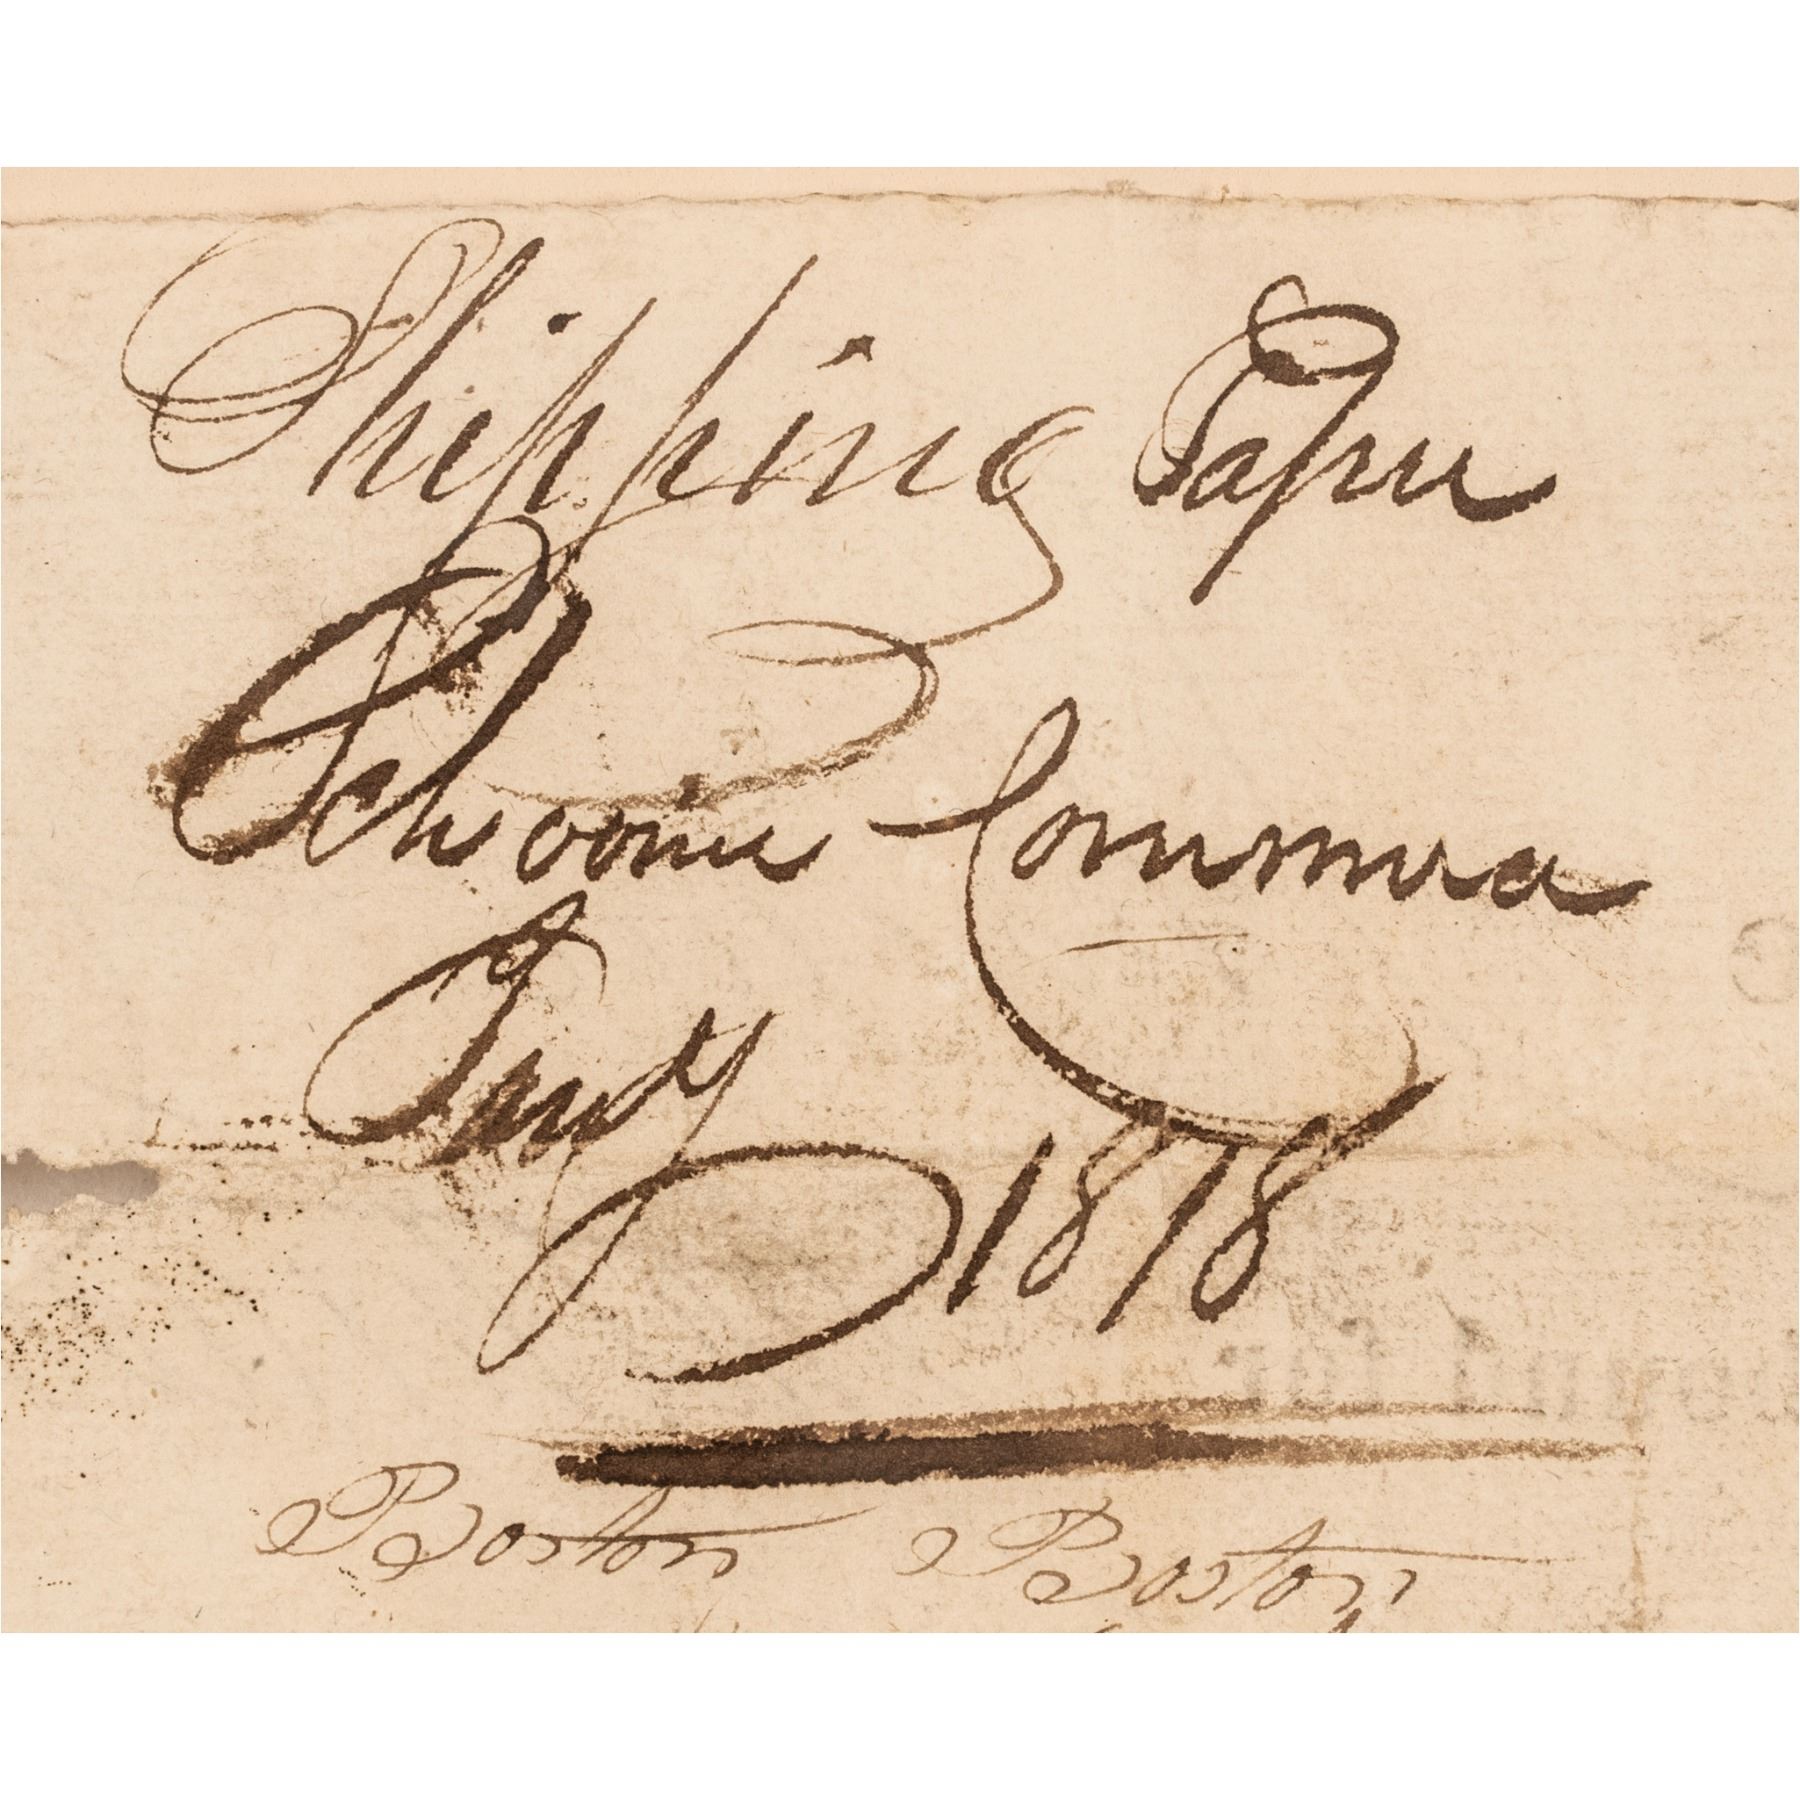 Shipping Paper
Schooner
Jany 1878
Boston Boston